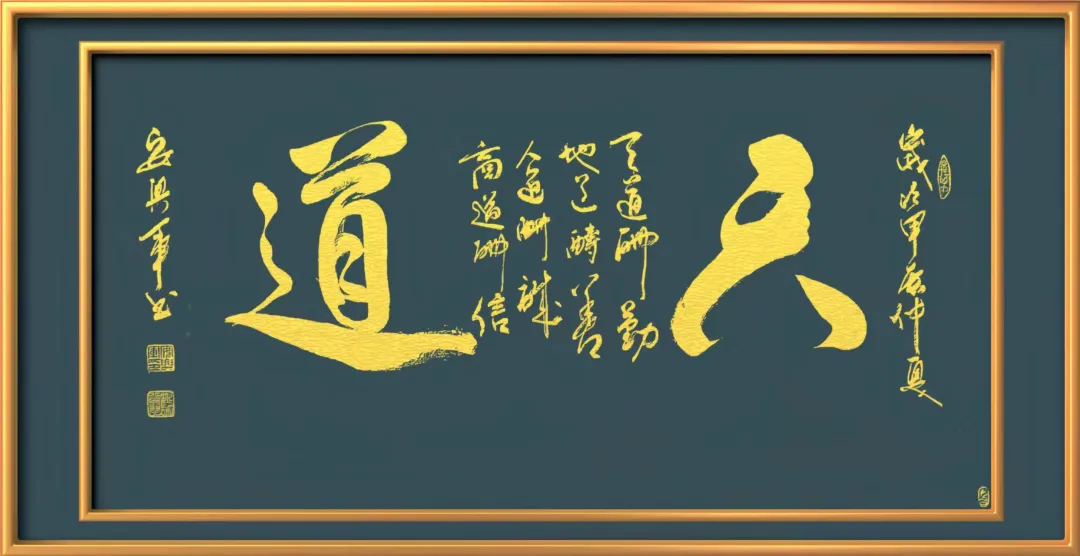 歲次甲辰仲夏
天
天道酬勤
地道醻善
人道酬誠
商道酬信
道
安興軍书